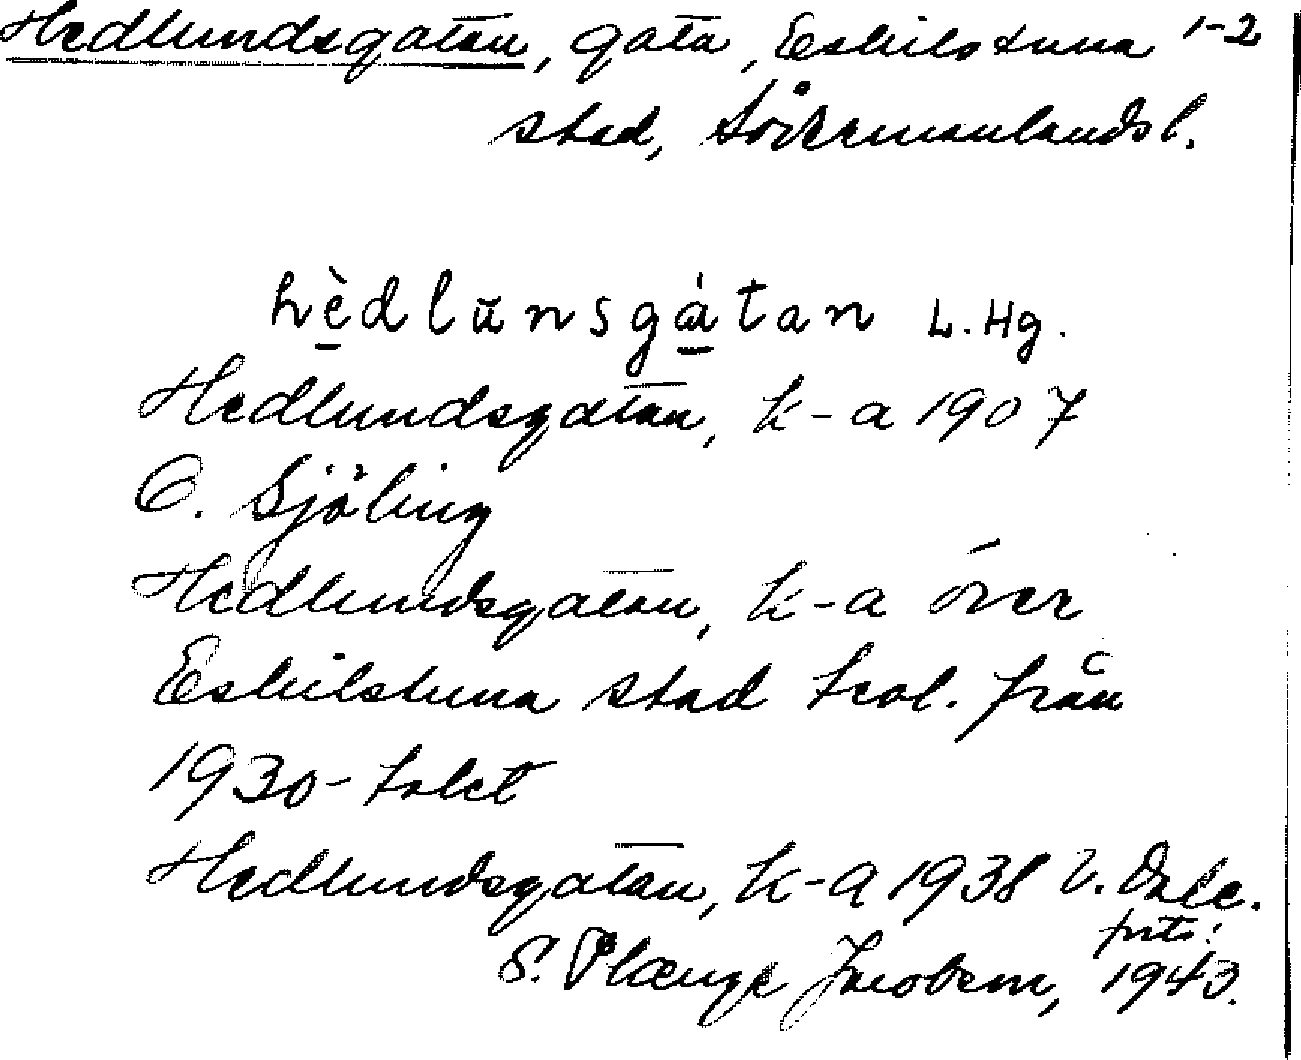 Hedlundsgatan, gata, Eskilstuna 1-2
stad, Södermanlands l.
hèdlŭnsgàtan L. Hg.
Hedlundsgatan, k-a 1907
C. Sjöling
Hedlundsgatan, k-a över
Eskilstuna stad trol. från
1930-talet
Hedlundsgatan, k-a 1938
S. Plænge Jacobson, 1943.